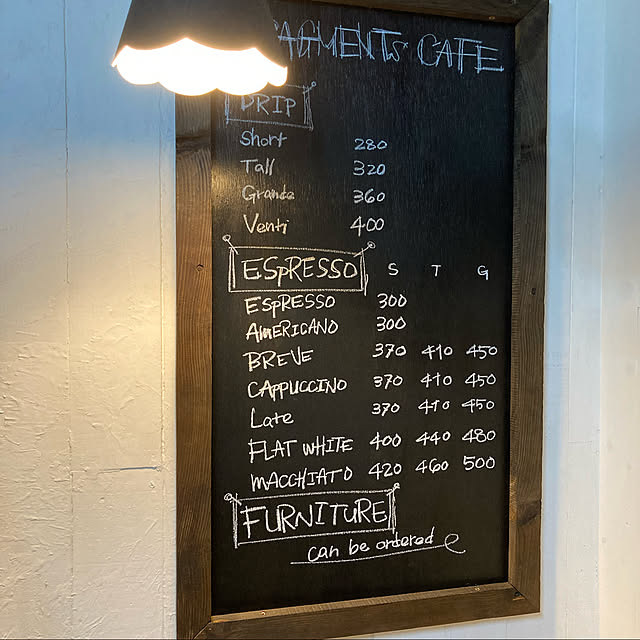 CAFE
DRIP
Short 280
Tall 320
Grande 360
Venti 400
ESpRESSO S T G
ESpRESSO 300
AmERICANO 300
BREVE 370 410 450
CAPPUCCINO 370 410 450
Late 370 410 450
FLAT WHITE 400 440 480
MACCHIATO 420 460 500
FURNITURE
can be ordered